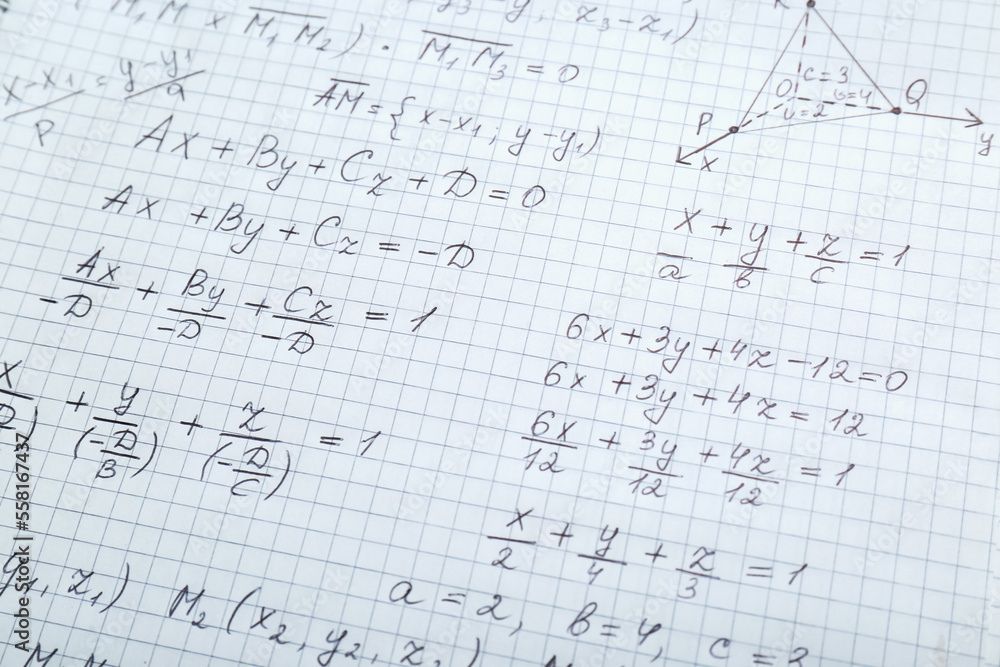 M₁M × M₁M₂) · M₁M₃ = 0
y₃ - y, z₃ - z₁)
x - x₁ / p = y - y₁ / a
AM = { x - x₁ ; y - y₁ )
Ax + By + Cz + D = 0
Ax + By + Cz = -D
Ax/-D + By/-D + Cz/-D = 1
x/D) + y/(-D/B) + z/(-D/C) = 1
y₁, z₁)
M₂ (x₂, y₂, z
c = 3
O
в = 4
P
Q
x
y
x/a + y/в + z/c = 1
6x + 3y + 4z - 12 = 0
6x + 3y + 4z = 12
6x/12 + 3y/12 + 4z/12 = 1
x/2 + y/4 + z/3 = 1
a = 2, в = 4, c =
Adobe Stock | #558167437